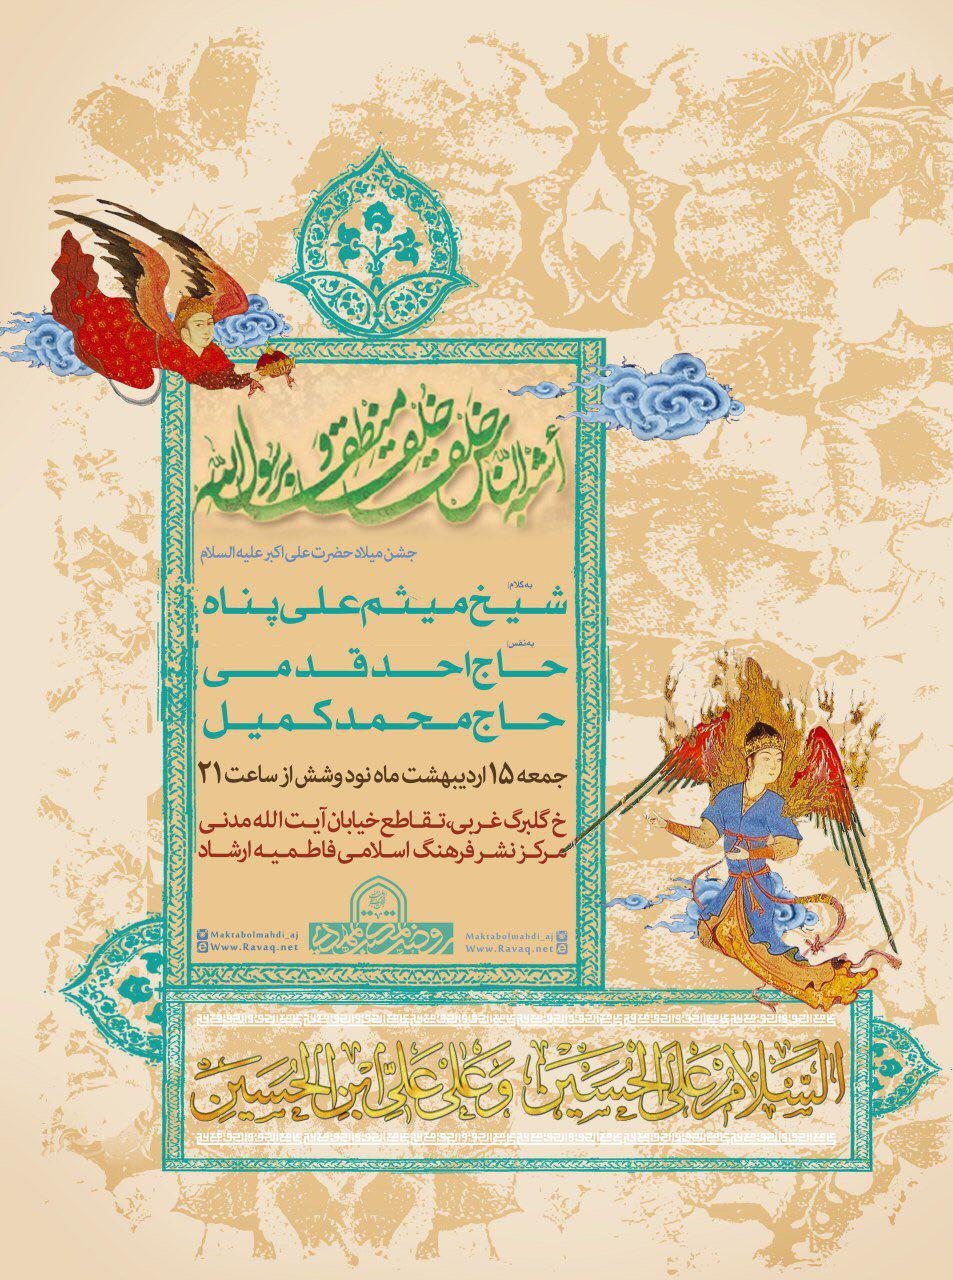 أشبه الناس خلقا و خلقا و منطقا برسول الله
جشن میلاد حضرت علی اکبر علیه السلام
به کلام:
شیخ میثم علی پناه
به نفس:
حاج احد قدمی
حاج محمد کمیل
جمعه ۱۵ اردیبهشت ماه نود و شش از ساعت ۲۱
خ گلبرگ غربی، تقاطع خیابان آیت الله مدنی
مرکز نشر فرهنگ اسلامی فاطمیه ارشاد
Maktabolmahdi_aj
Www.Ravaq.net
Maktabolmahdi_aj
Www.Ravaq.net
السَّلامُ عَلَى الحُسَيْن وَ عَلى عَلِيِّ ابْنِ الحُسَيْنِ